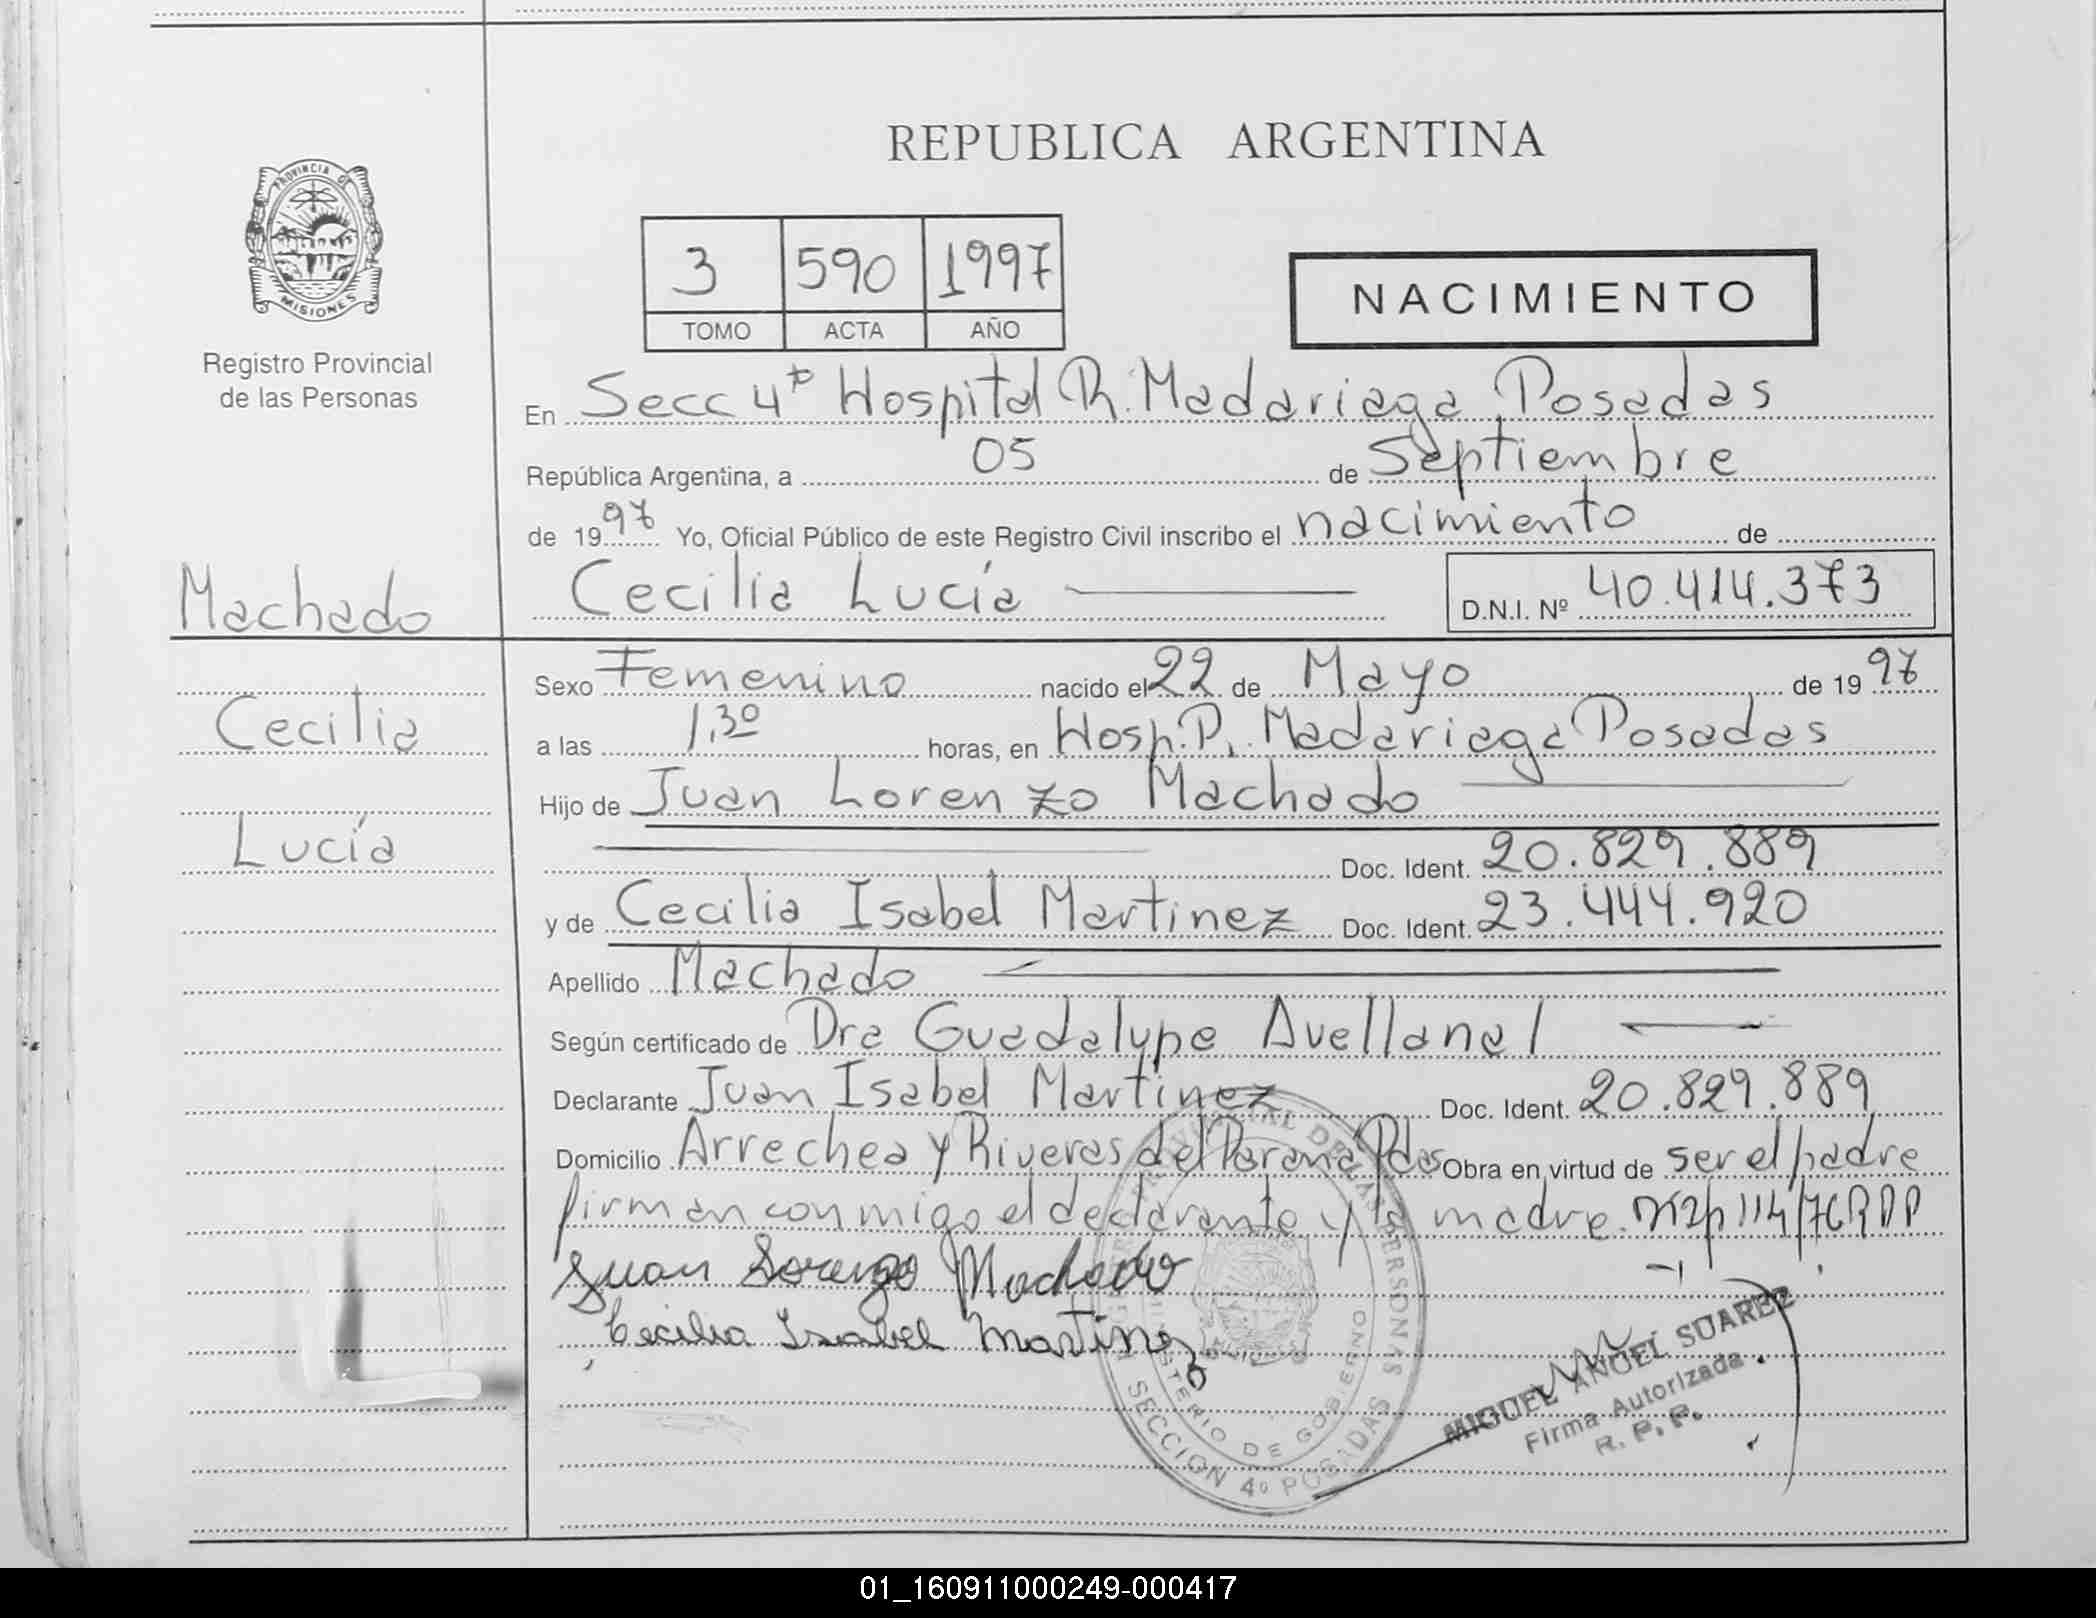 REPUBLICA ARGENTINA
PROVINCIA DE
MISIONES
Registro Provincial
de las Personas
3 590 1997
TOMO ACTA AÑO
NACIMIENTO
En Secc 4ta Hospital R. Madariaga Posadas
República Argentina, a 05 de Septiembre
de 1997 Yo, Oficial Público de este Registro Civil inscribo el nacimiento de
Machado
Cecilia Lucía D.N.I. Nº 40.414.373
Sexo Femenino nacido el 22 de Mayo de 1997
Cecilia
a las 1,30 horas, en Hosp. R. Madariaga Posadas
Hijo de Juan Lorenzo Machado
Lucía
Doc. Ident. 20.829.889
y de Cecilia Isabel Martinez Doc. Ident. 23.444.920
Apellido Machado
Según certificado de Dra Guadalupe Avellanal
Declarante Juan Isabel Martinez Doc. Ident. 20.829.889
Domicilio Arrechea y Riveras del Paraná Pdas Obra en virtud de ser el padre
firman conmigo el declarante y la madre
Juan Lorenzo Machado
Cecilia Isabel Martinez
MINISTERIO DE GOBIERNO
SECCION 4º POSADAS
MIGUEL ANGEL SUAREZ
Firma Autorizada
R. P. P.
01_160911000249-000417